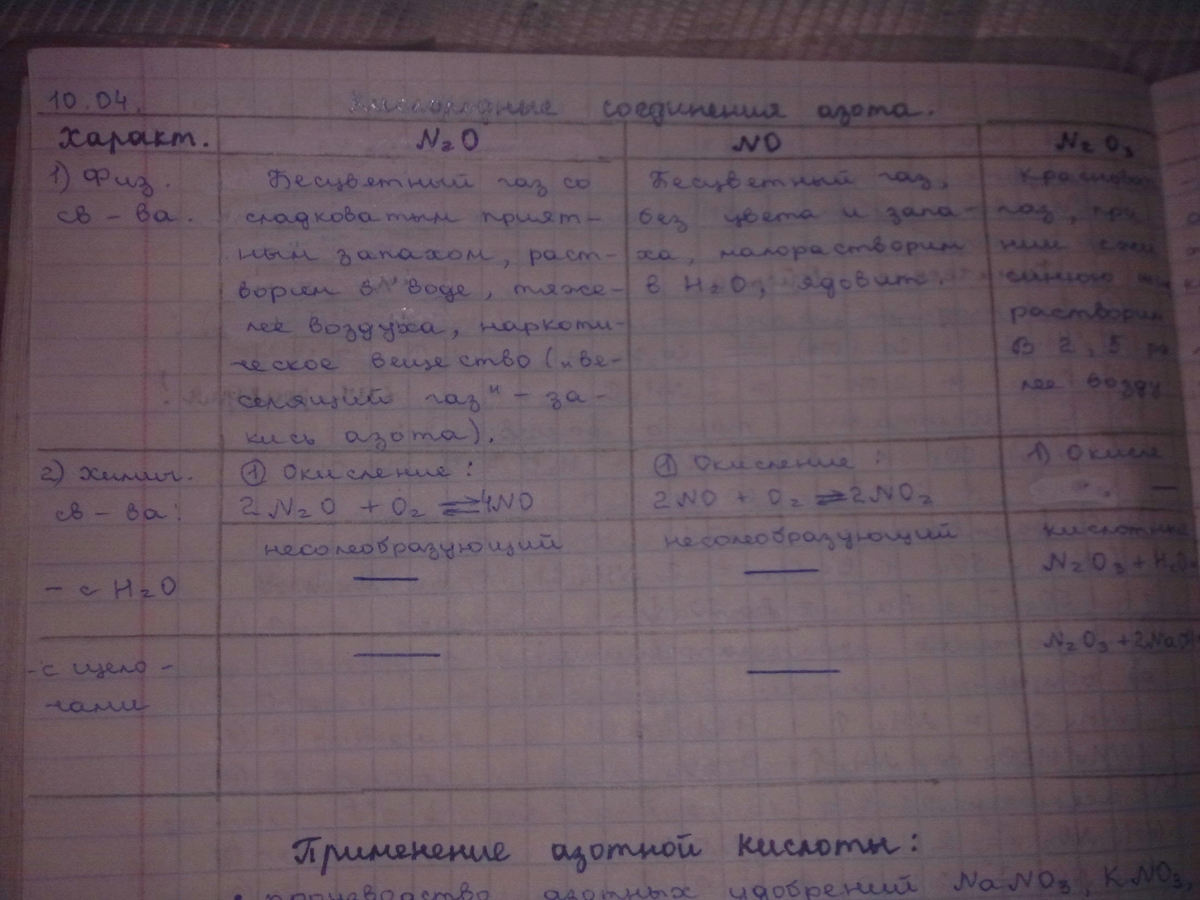 10.04. Кислородные соединения азота.
Характ. N₂O NO N₂O₃
1) Физ.
св-ва.
Бесцветный газ со
сладковатым прият-
ным запахом, раст-
ворим в воде, тяже-
лее воздуха, наркоти-
ческое вещество („ве-
селящий газ" - за-
кись азота).
Бесцветный газ,
без цвета и запа-
ха, малорастворим
в H₂O, ядовит.
газ, при
синюю
растворим
В 2,5
лее возду
2) Химич.
св-ва:
① Окисление:
2N₂O + O₂ ⇌ 4NO
① Окисление:
2NO + O₂ ⇌ 2NO₂
1) Окисле
—
- с H₂O
несолеобразующий
—
несолеобразующий
—
кислотны
N₂O₃ + H₂O
- с щело-
чами
—
—
N₂O₃ + 2NaOH
Применение азотной кислоты:
• производство азотных удобрений NaNO₃, KNO₃,